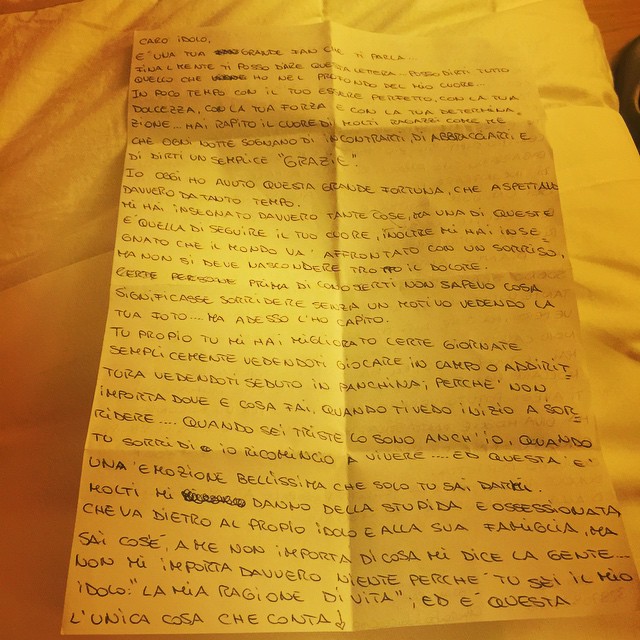 CARO IDOLO,
E' UNA TUA GRANDE FAN CHE TI PARLA...
FINALMENTE TI POSSO DARE QUESTA LETTERA... POSSO DIRTI TUTTO
QUELLO CHE HO NEL PROFONDO DEL MIO CUORE...
IN POCO TEMPO CON IL TUO ESSERE PERFETTO, CON LA TUA
DOLCEZZA, CON LA TUA FORZA E CON LA TUA DETERMINA-
ZIONE... HAI RAPITO IL CUORE DI MOLTI RAGAZZI COME ME
CHE OGNI NOTTE SOGNANO DI INCONTRARTI, DI ABBRACCIARTI E
DI DIRTI UN SEMPLICE "GRAZIE".
IO OGGI HO AVUTO QUESTA GRANDE FORTUNA, CHE ASPETTAVO
DAVVERO DA TANTO TEMPO.
MI HAI INSEGNATO DAVVERO TANTE COSE, MA UNA DI QUESTE
E' QUELLA DI SEGUIRE IL TUO CUORE, INOLTRE MI HAI INSE=
GNATO CHE IL MONDO VA' AFFRONTATO CON UN SORRISO,
MA NON SI DEVE NASCONDERE TROPPO IL DOLORE.
CERTE PERSONE PRIMA DI CONOSCERTI NON SAPEVO COSA
SIGNIFICASSE SORRIDERE SENZA UN MOTIVO VEDENDO LA
TUA FOTO.... MA ADESSO L'HO CAPITO.
TU PROPIO TU MI HAI MIGLIORATO CERTE GIORNATE
SEMPLICEMENTE VEDENDOTI GIOCARE IN CAMPO O ADDIRIT=
TURA VEDENDOTI SEDUTO IN PANCHINA; PERCHE' NON
IMPORTA DOVE E COSA FAI, QUANDO TI VEDO INIZIO A SOR=
RIDERE.... QUANDO SEI TRISTE LO SONO ANCH'IO, QUANDO
TU SORRIDI IO RICOMINCIO A VIVERE .... ED QUESTA E'
UNA' EMOZIONE BELLISSIMA CHE SOLO TU SAI DARMI.
MOLTI MI DANNO DELLA STUPIDA E OSSESSIONATA
CHE VA DIETRO AL PROPIO IDOLO E ALLA SUA FAMIGLIA, MA
SAI COSE', A ME NON IMPORTA DI COSA MI DICE LA GENTE....
NON MI IMPORTA DAVVERO NIENTE PERCHE' TU SEI IL MIO
IDOLO: "LA MIA RAGIONE DI VITA"; ED E' QUESTA
L'UNICA COSA CHE CONTA!